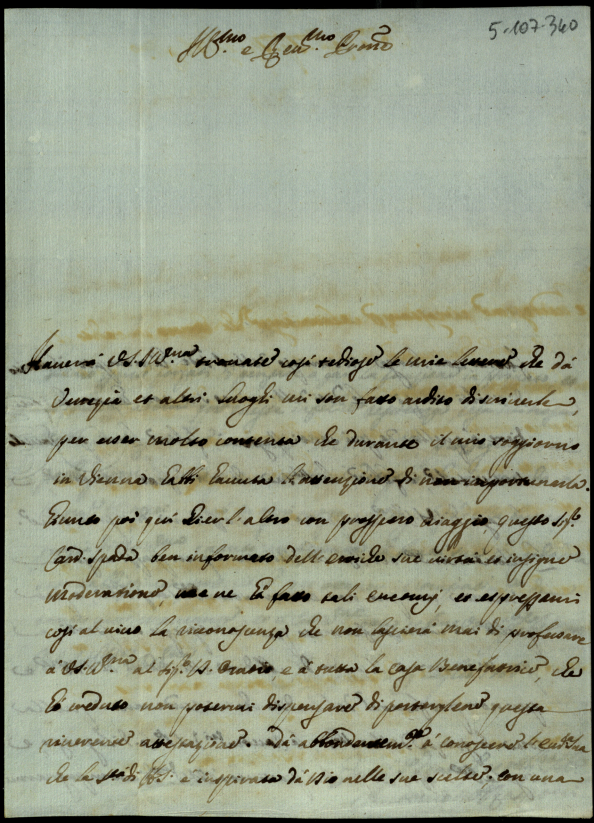 5-107-340
Ill.mo e Rev.mo Prone
Haverà V.S. Ill.ma trovate così tediose le mie lettere che dà
Venezia et altri luoghi mi son fatto ardito di scriverle,
per esser molto contenta che durante il mio soggiorno
in Vienna habbi havuta l'attenzione di non importunarla.
Giunto poi qui hier l'altro con prospero viaggio, questo Sig.r
Card. Spada ben informato dell' eroiche sue virtù et insigne
moderatione, me ne hà fatto tali encomij, et espressami
così al vivo la riconoscenza che non lascierà mai di professare
à V.S. Ill.ma al Sig.r D. Oratio, e à tutta la Casa Benefattrice, che
hò creduto non potermi dispensare di portargliene questa
riverente attestazione. Dà à conoscere
che la S.tà di N.S. è inspirata dà Dio nelle sue scelte, con una